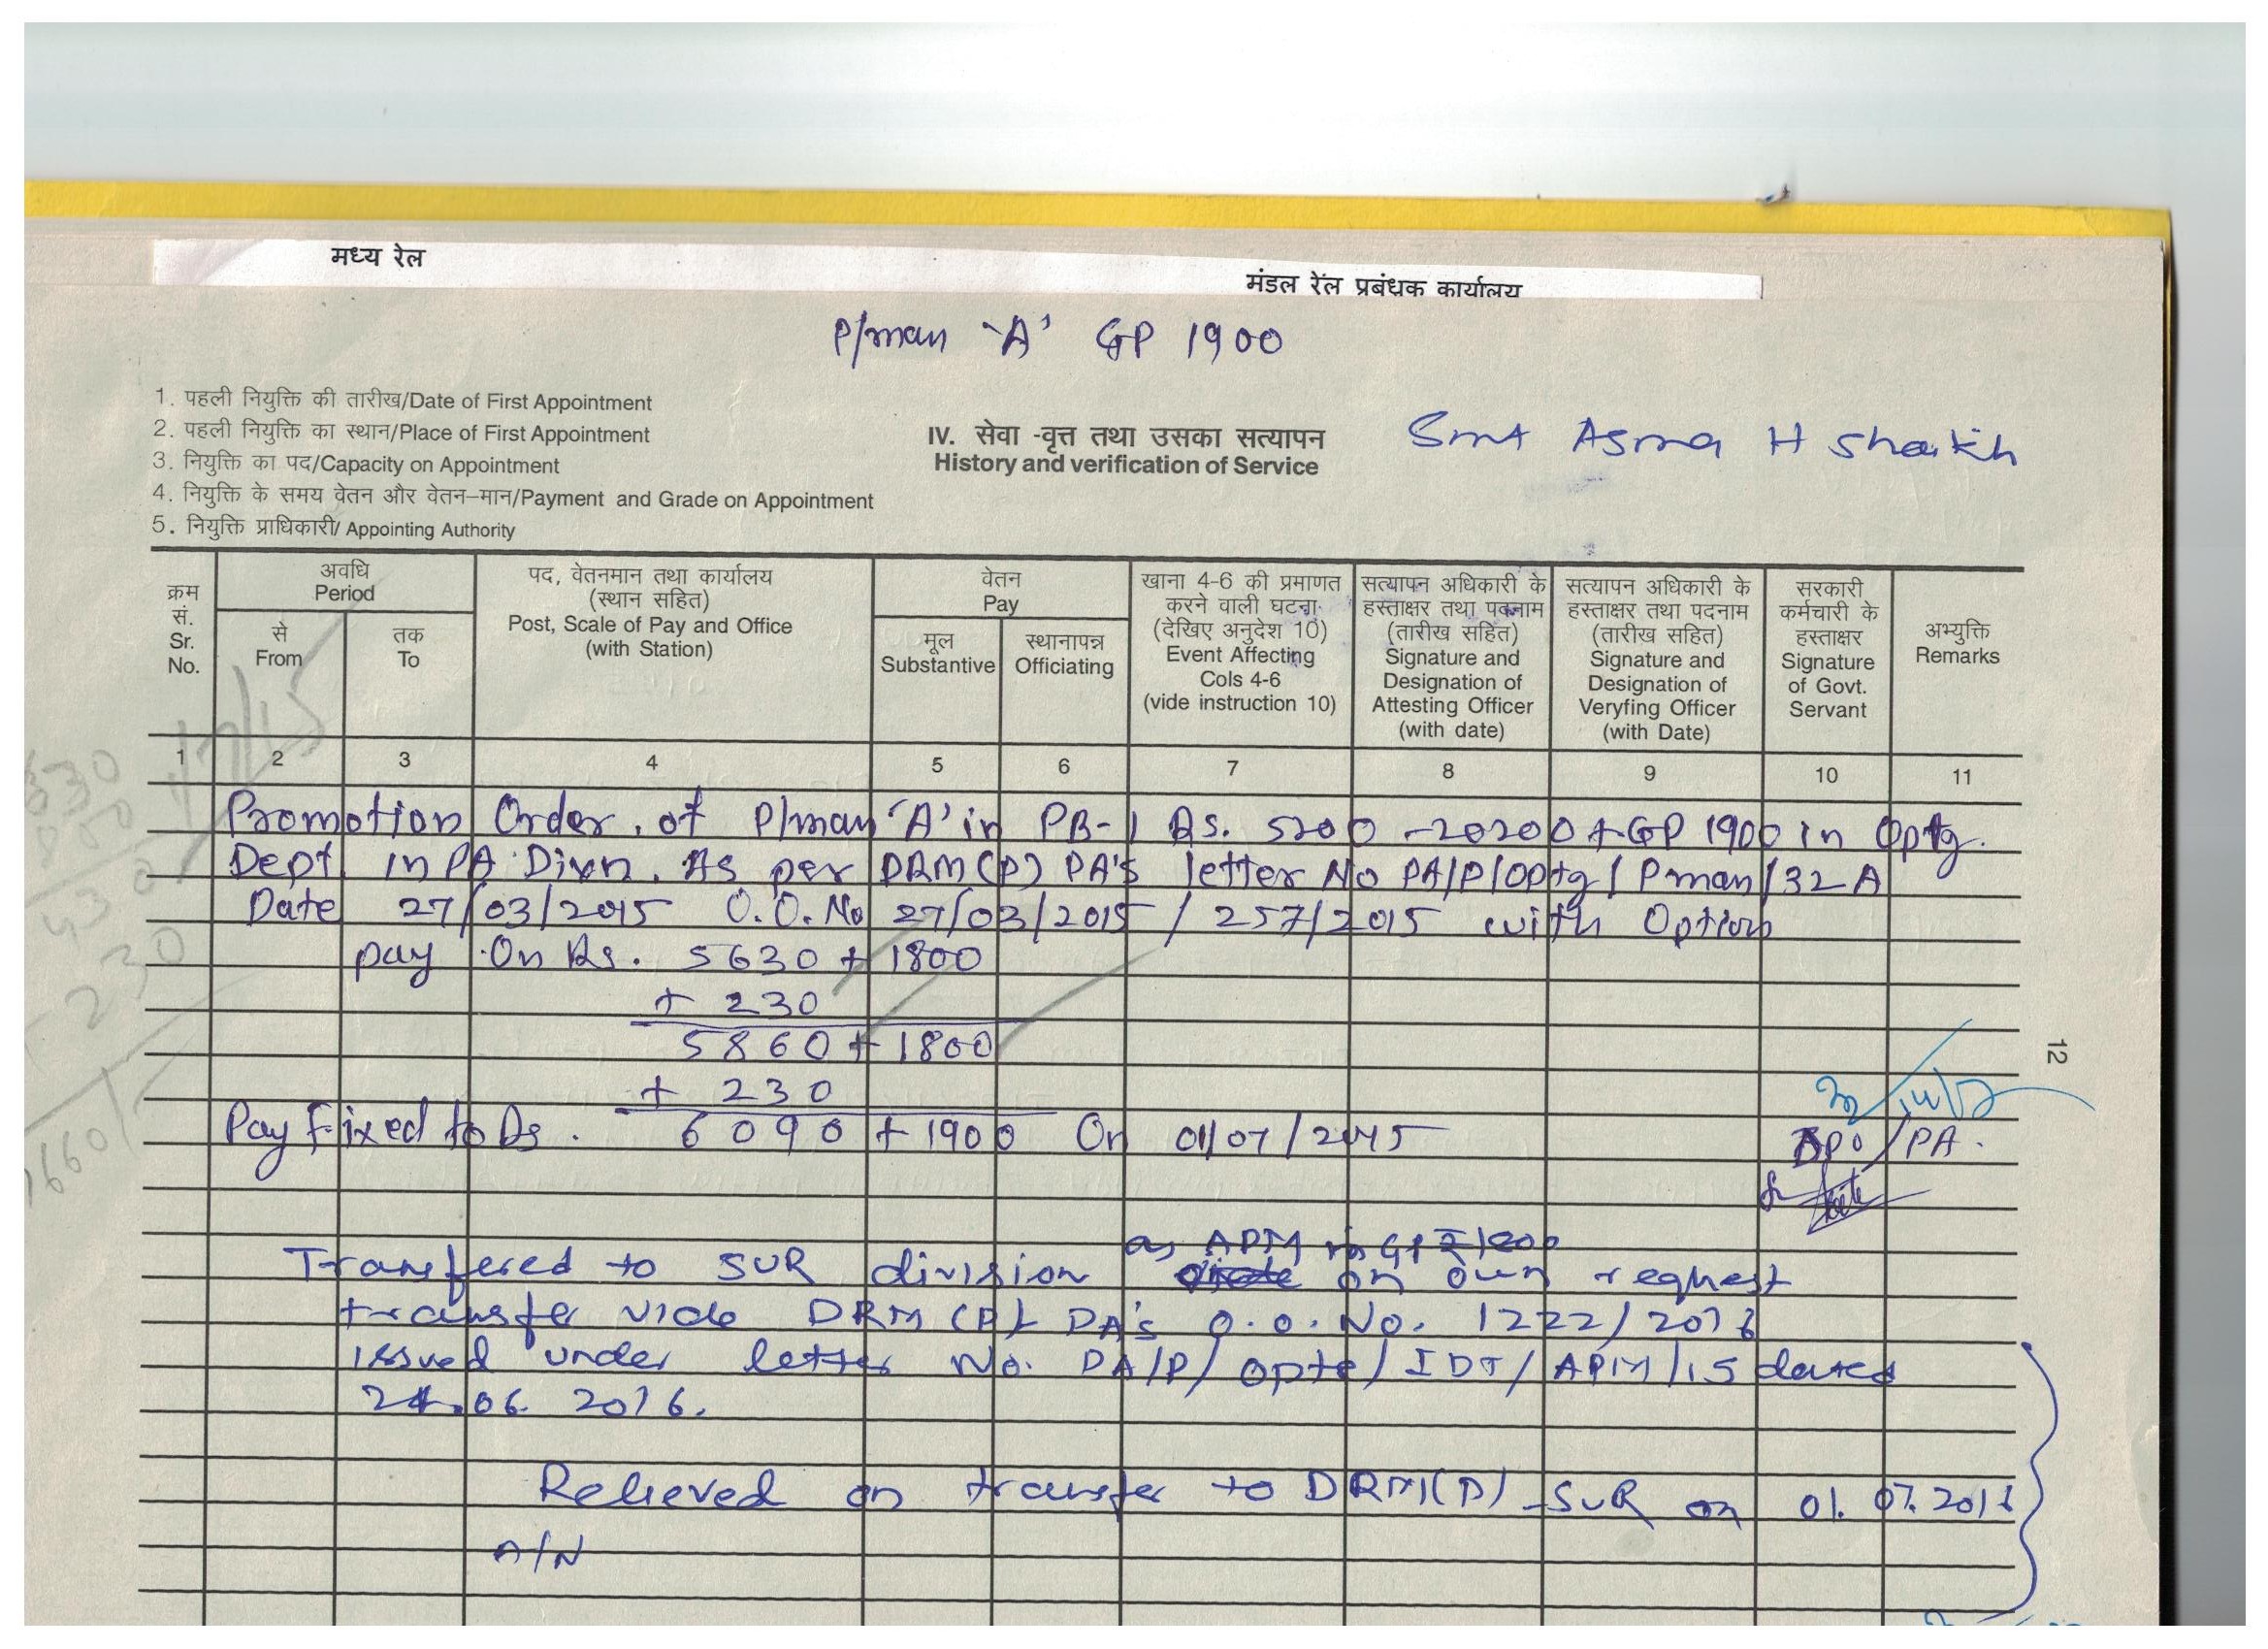 मध्य रेल
मंडल रेल प्रबंधक कार्यालय
P/man 'A' GP 1900
1. पहली नियुक्ति की तारीख/Date of First Appointment
2. पहली नियुक्ति का स्थान/Place of First Appointment
3. नियुक्ति का पद/Capacity on Appointment
4. नियुक्ति के समय वेतन और वेतन-मान/Payment and Grade on Appointment
5. नियुक्ति प्राधिकारी/ Appointing Authority
IV. सेवा -वृत्त तथा उसका सत्यापन
History and verification of Service
Smt Asma H Shaikh
क्रम सं. Sr. No.
अवधि Period
से From
तक To
पद, वेतनमान तथा कार्यालय (स्थान सहित) Post, Scale of Pay and Office (with Station)
वेतन Pay
मूल Substantive
स्थानापन्न Officiating
खाना 4-6 की प्रमाणत करने वाली घटना (देखिए अनुदेश 10) Event Affecting Cols 4-6 (vide instruction 10)
सत्यापन अधिकारी के हस्ताक्षर तथा पदनाम (तारीख सहित) Signature and Designation of Attesting Officer (with date)
सत्यापन अधिकारी के हस्ताक्षर तथा पदनाम (तारीख सहित) Signature and Designation of Veryfing Officer (with Date)
सरकारी कर्मचारी के हस्ताक्षर Signature of Govt. Servant
अभ्युक्ति Remarks
1 2 3 4 5 6 7 8 9 10 11
Promotion Order. of P/man 'A' in PB-1 Rs. 5200-20200+GP 1900 in Optg.
Dept in PA Divn. As per DRM(P) PA's letter No PA/P/Optg/Pman/32A
Date 27/03/2015 O.O.No 27/03/2015 / 257/2015 with Option
pay On Rs. 5630 + 1800
+ 230
5860 + 1800
+ 230
Pay Fixed to Rs. 6090 + 1900 On 01/07/2015
APO/PA.
12
as APM in GP ₹1800
Transfered to SUR division on own request
transfer vide DRM(P)L PA's O.O.No. 1222/2016
issued under letter No. PA/P/Optg/IDT/APM/15 dated
24.06.2016.
Relieved on transfer to DRM(P) SUR on 01.07.2016
A/N